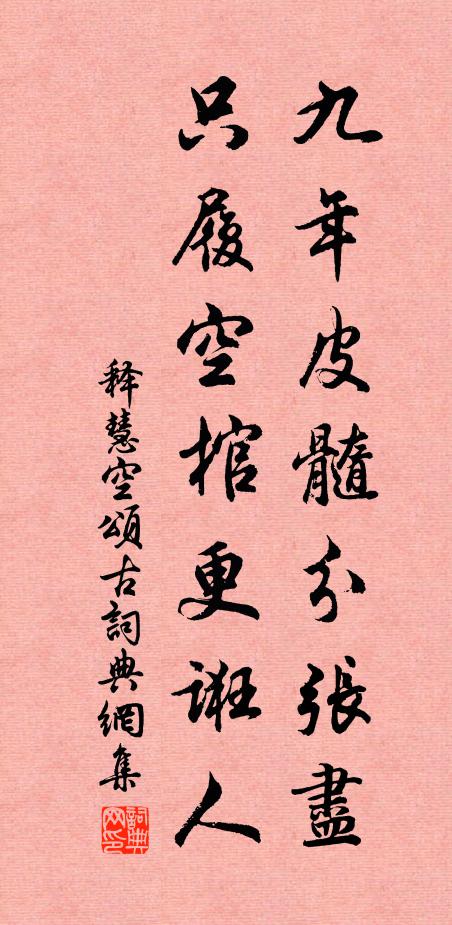 九年皮髓分張盡
只履空棺更誑人
释慧空頌古詞典網集
詞典网印